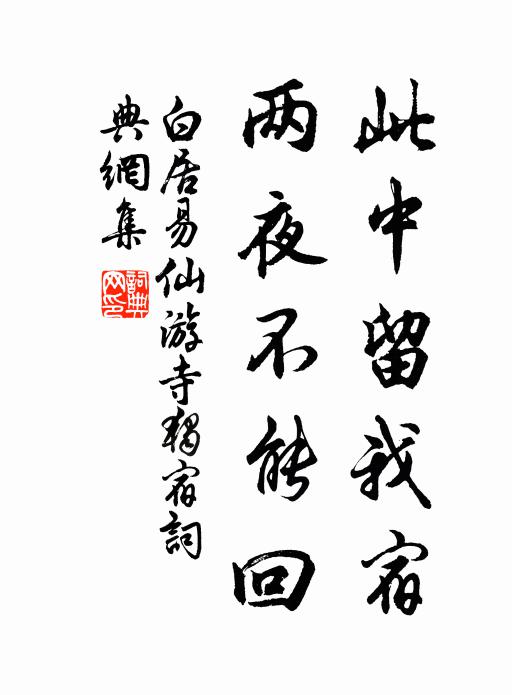 此中留我宿
两夜不能回
白居易仙游寺独宿詞
典網集
詞典网印